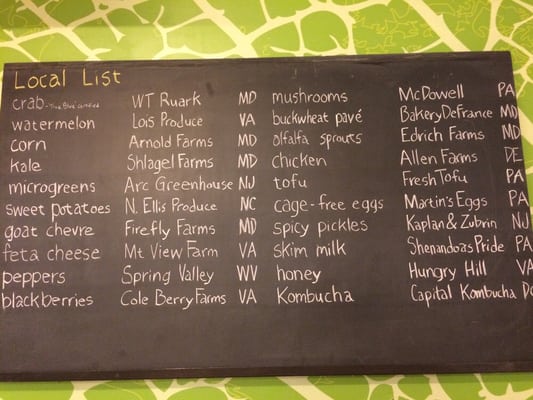 Local List
crab - True Blue certified WT Ruark MD mushrooms McDowell PA
watermelon Lois Produce VA buckwheat pavé Bakery DeFrance MD
corn Arnold Farms MD alfalfa sprouts Edrich Farms MD
kale Shlagel Farms MD chicken Allen Farms DE
microgreens Arc Greenhouse NJ tofu Fresh Tofu PA
sweet potatoes N. Ellis Produce NC cage-free eggs Martin's Eggs PA
goat chevre Firefly Farms MD spicy pickles Kaplan & Zubrin NJ
feta cheese Mt View Farm VA skim milk Shenandoas Pride PA
peppers Spring Valley WV honey Hungry Hill VA
blackberries Cole Berry Farms VA Kombucha Capital Kombucha DC